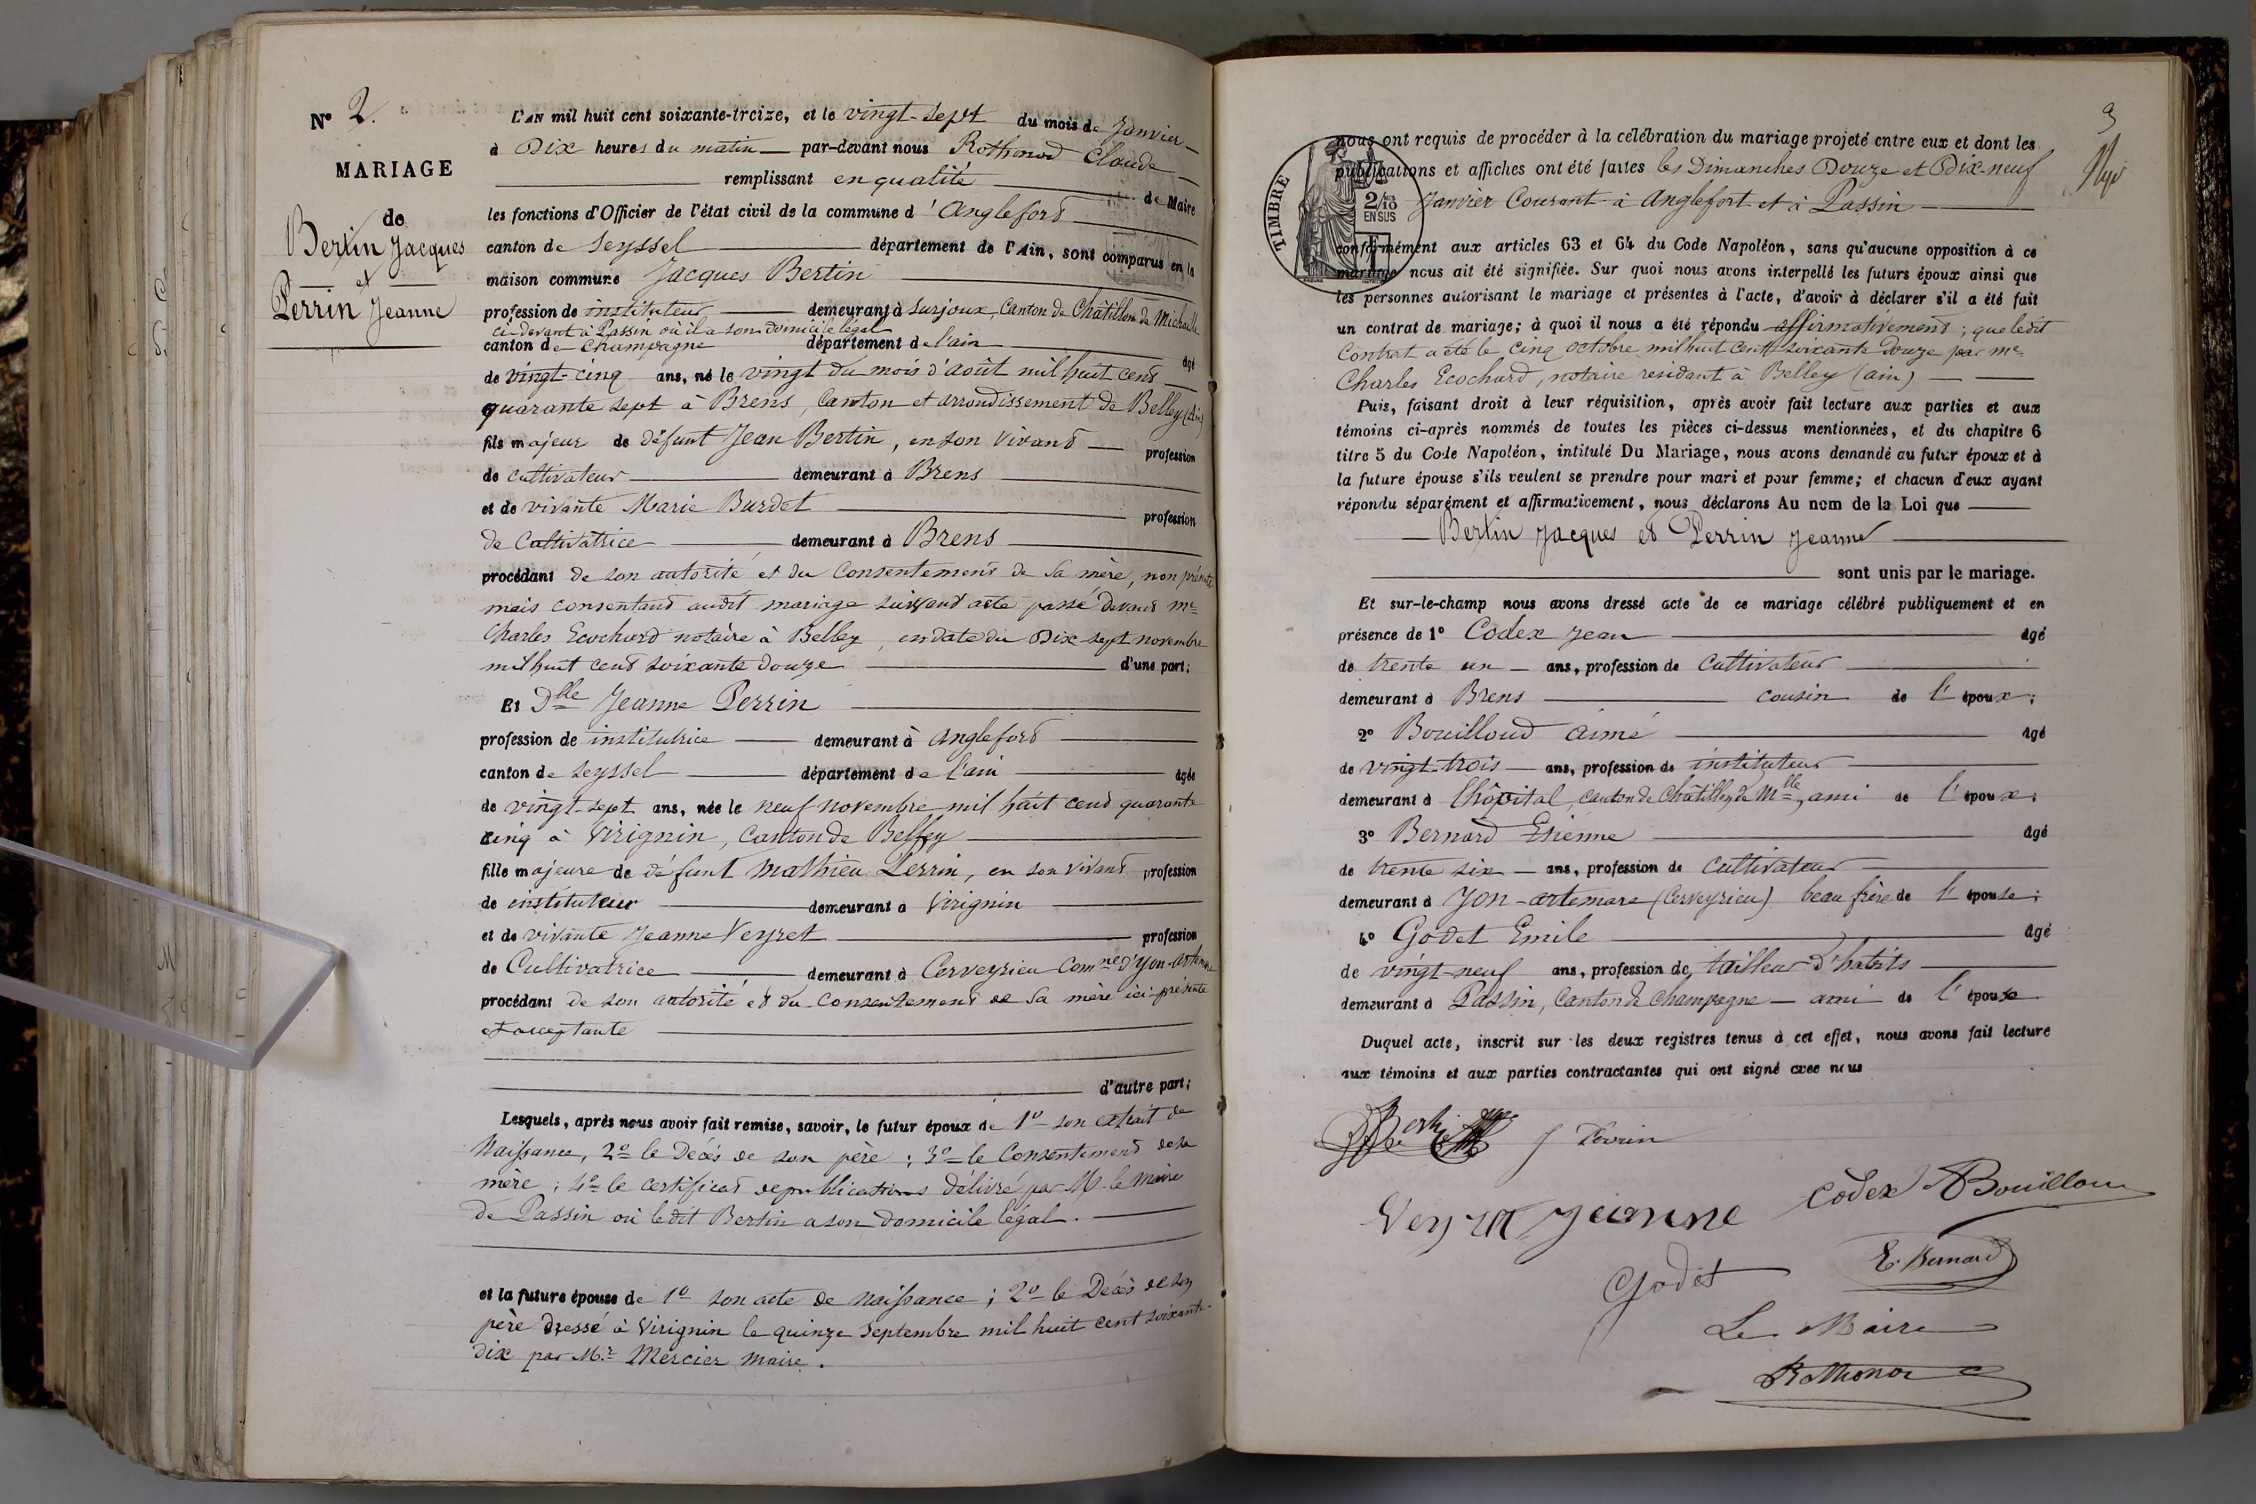 N° 2.
MARIAGE
de
Bertin Jacques
et
Perrin Jeanne
L'AN mil huit cent soixante-treize, et le vingt-sept du mois de Janvier
à Dix heures du matin par-devant nous Rothonod Claude
remplissant en qualité de Maire
les fonctions d'Officier de l'état civil de la commune d'Anglefort
canton de Seyssel département de l'Ain, sont comparus en la
maison commune Jacques Bertin
profession de instituteur demeurant à Surjoux, Canton de Châtillon de Michaille
ci-devant à Passin où il a son domicile légal
canton de Champagne département de l'ain âgé
de vingt-cinq ans, né le vingt du mois d'août mil huit cent
quarante sept à Brens, Canton et arrondissement de Belley (Ain)
fils majeur de défunt Jean Bertin, en son vivant profession
de cultivateur demeurant à Brens
et de vivante Marie Burdet profession
de Cultivatrice demeurant à Brens
procédant de son autorité et du Consentement de sa mère, non présente
mais consentant audit mariage suivant acte passé devant me
Charles Ecochard notaire à Belley, en date du Dix-sept novembre
mil huit cent soixante douze d'une part;
Et Dlle Jeanne Perrin
profession de institutrice demeurant à Anglefort
canton de Seyssel département de l'ain âgée
de vingt-sept ans, née le neuf novembre mil huit cent quarante
cinq à Virignin, Canton de Belley
fille majeure de défunt Mathieu Perrin, en son vivant profession
de instituteur demeurant à Virignin
et de vivante Jeanne Veyret profession
de Cultivatrice demeurant à Cerveyrieu Comne d'Yon-Artemare
procédant de son autorité et du Consentement de sa mère ici présente
et acceptante
d'autre part;
Lesquels, après nous avoir fait remise, savoir, le futur époux de 1° son extrait de
Naissance, 2° le Décès de son père; 3° le Consentement de sa
mère; 4° le certificat de publications délivré par M. le Maire
de Passin où ledit Bertin a son domicile légal.
et la future épouse de 1° son acte de Naissance; 2° le Décès de son
père dressé à Virignin le quinze Septembre mil huit cent soixante-
dix par Mr Mercier Maire.
3
TIMBRE
2/10
EN SUS
nous ont requis de procéder à la célébration du mariage projeté entre eux et dont les
publications et affiches ont été faites les Dimanches Douze et Dix-neuf
Janvier Courant à Anglefort et à Passin
conformément aux articles 63 et 64 du Code Napoléon, sans qu'aucune opposition à ce
mariage nous ait été signifiée. Sur quoi nous avons interpellé les futurs époux ainsi que
les personnes autorisant le mariage et présentes à l'acte, d'avoir à déclarer s'il a été fait
un contrat de mariage; à quoi il nous a été répondu affirmativement; que ledit
Contrat a été le cinq octobre mil huit cent soixante douze par me
Charles Ecochard, notaire residant à Belley (ain)
Puis, faisant droit à leur réquisition, après avoir fait lecture aux parties et aux
témoins ci-après nommés de toutes les pièces ci-dessus mentionnées, et du chapitre 6
titre 5 du Code Napoléon, intitulé Du Mariage, nous avons demandé au futur époux et à
la future épouse s'ils veulent se prendre pour mari et pour femme; et chacun d'eux ayant
répondu séparément et affirmativement, nous déclarons Au nom de la Loi que
Bertin Jacques et Perrin Jeanne
sont unis par le mariage.
Et sur-le-champ nous avons dressé acte de ce mariage célébré publiquement et en
présence de 1° Codex Jean âgé
de trente un ans, profession de Cultivateur
demeurant à Brens cousin de l'époux;
2° Bouilloud Aimé âgé
de vingt-trois ans, profession de instituteur
demeurant à lhôpital, canton de Châtillon de Mlle, ami de l'époux;
3° Bernard Etienne âgé
de trente six ans, profession de Cultivateur
demeurant à Yon-artemare (Cerveyrieu) beau frère de l'épouse;
4° Godet Emile âgé
de vingt-neuf ans, profession de tailleur d'habits
demeurant à Passin, Canton de Champagne ami de l'épouse
Duquel acte, inscrit sur les deux registres tenus à cet effet, nous avons fait lecture
aux témoins et aux parties contractantes qui ont signé avec nous
J Perrin
Veyret Jeanne
Codex
ABouilloud
Godet
E. Bernard
Le Maire
Rothonod